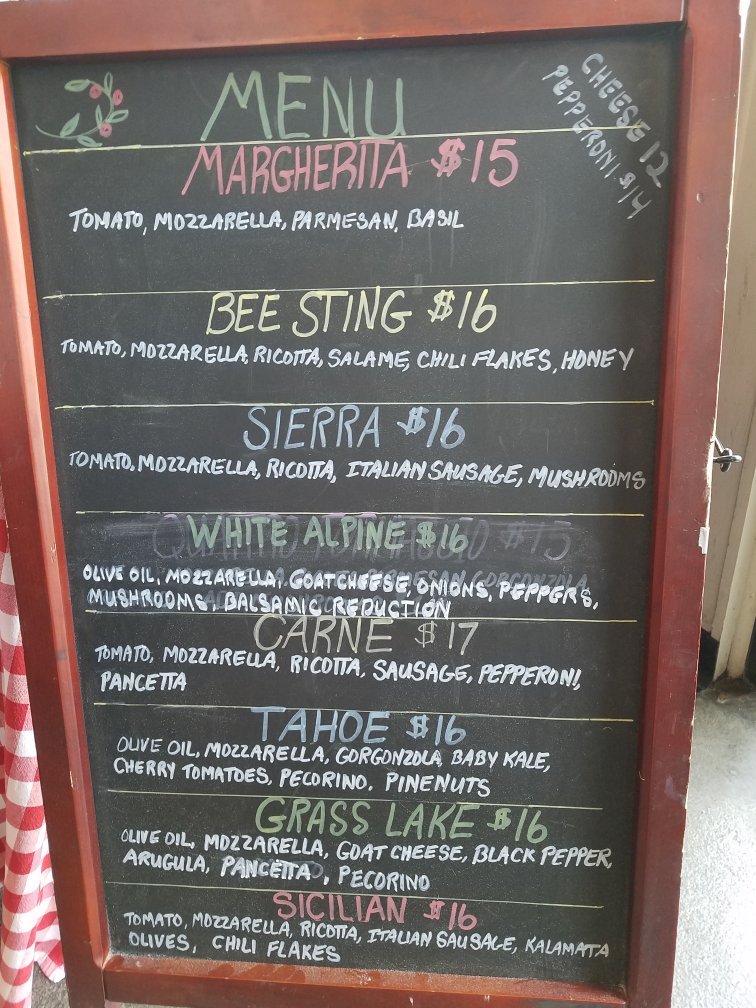 MENU
CHEESE 12
PEPPERONI $14
MARGHERITA $15
TOMATO, MOZZARELLA, PARMESAN, BASIL
BEE STING $16
TOMATO, MOZZARELLA, RICOTTA, SALAME, CHILI FLAKES, HONEY
SIERRA $16
TOMATO, MOZZARELLA, RICOTTA, ITALIAN SAUSAGE, MUSHROOMS
WHITE ALPINE $16
OLIVE OIL, MOZZARELLA, GOAT CHEESE, ONIONS, PEPPERS,
MUSHROOMS, BALSAMIC REDUCTION
CARNE $17
TOMATO, MOZZARELLA, RICOTTA, SAUSAGE, PEPPERONI,
PANCETTA
TAHOE $16
OLIVE OIL, MOZZARELLA, GORGONZOLA, BABY KALE,
CHERRY TOMATOES, PECORINO, PINENUTS
GRASS LAKE $16
OLIVE OIL, MOZZARELLA, GOAT CHEESE, BLACK PEPPER,
ARUGULA, PANCETTA, PECORINO
SICILIAN $16
TOMATO, MOZZARELLA, RICOTTA, ITALIAN SAUSAGE, KALAMATA
OLIVES, CHILI FLAKES